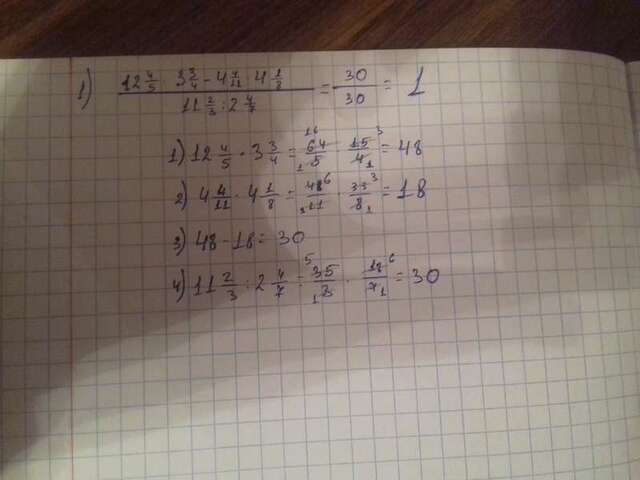 1) (12 4/5 · 3 3/4 - 4 4/11 · 4 1/8) / (11 2/3 : 2 4/7) = 30/30 = 1
1) 12 4/5 · 3 3/4 = 64/5 · 15/4 = 48
2) 4 4/11 · 4 1/8 = 48/11 · 33/8 = 18
3) 48 - 18 = 30
4) 11 2/3 : 2 4/7 = 35/3 · 18/7 = 30